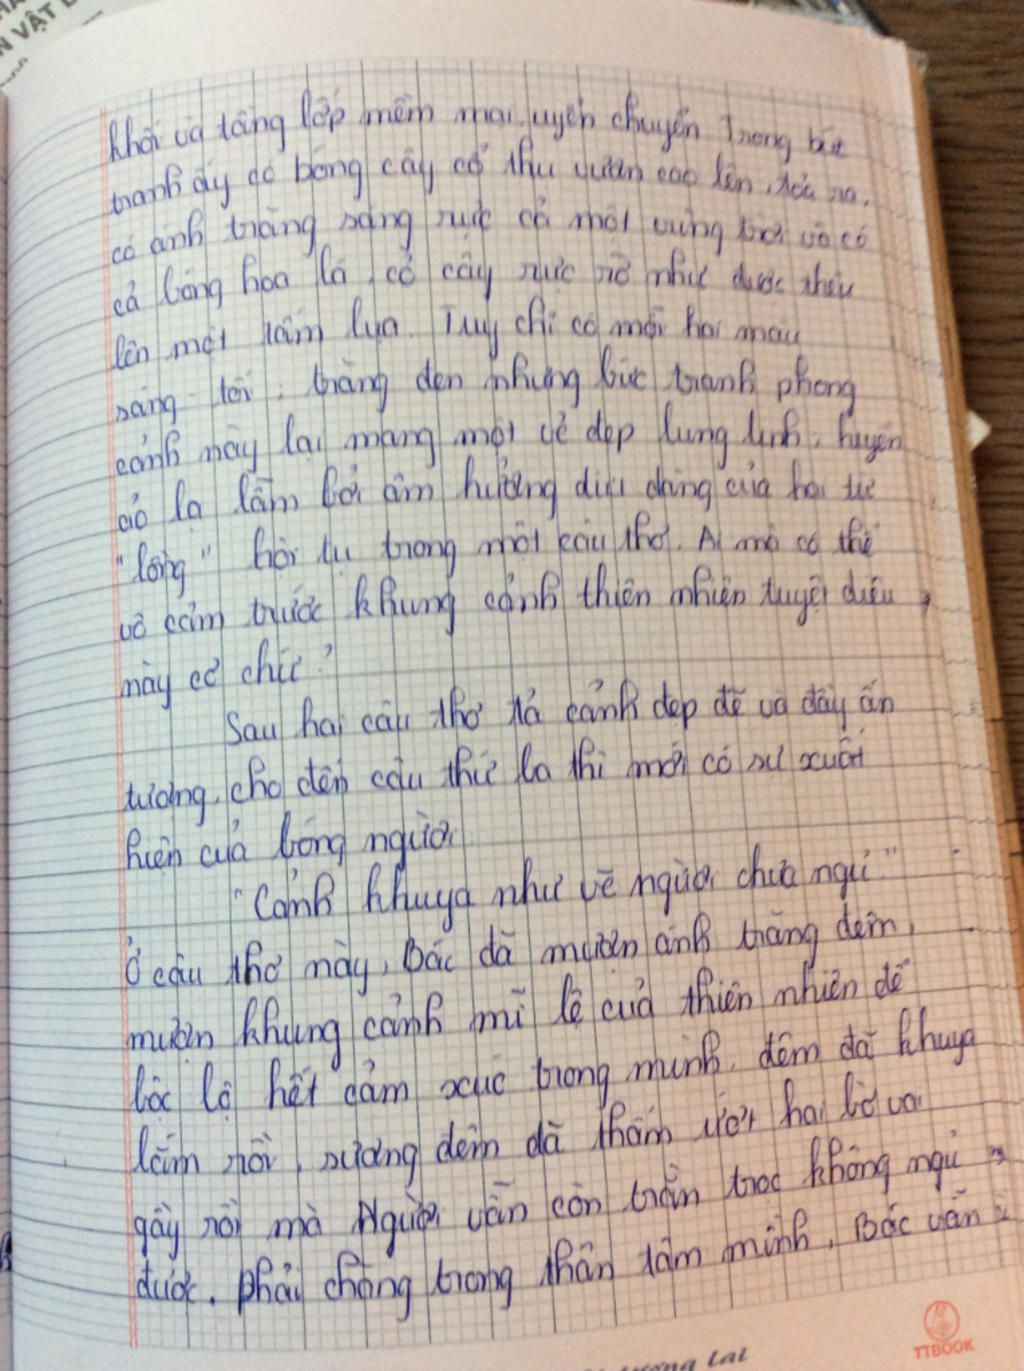 N VẬT
khối và tầng lớp mềm mại, uyển chuyển Trong bức
tranh ấy có bóng cây cổ thụ vươn cao lên, tỏa ra,
có ánh trăng sáng rực cả một vùng trời và có
cả bóng hoa lá, cỏ cây rực rỡ như được thêu
lên một tấm lụa. Tuy chỉ có mỗi hai màu
sáng - tối, trắng đen nhưng bức tranh phong
cảnh này lại mang một vẻ đẹp lung linh, huyền
ảo lạ lắm bởi âm hưởng dịu dàng của hai từ
"lồng" hội tụ trong một câu thơ. Ai mà có thể
vô cảm trước khung cảnh thiên nhiên tuyệt diệu
này cơ chứ?
Sau hai câu thơ tả cảnh đẹp đẽ và đầy ấn
tượng, cho đến câu thứ ba thì mới có sự xuất
hiện của bóng người.
"Cảnh khuya như vẽ người chưa ngủ"
Ở câu thơ này, Bác đã mượn ánh trăng đêm,
mượn khung cảnh mĩ lệ của thiên nhiên để
bộc lộ hết cảm xúc trong mình. đêm đã khuya
lắm rồi, sương đêm đã thấm ướt hai bờ vai
gầy rồi mà Người vẫn còn trằn trọc không ngủ
được. phải chăng trong thân tâm mình, Bác vẫn
tương lai
TTBOOK